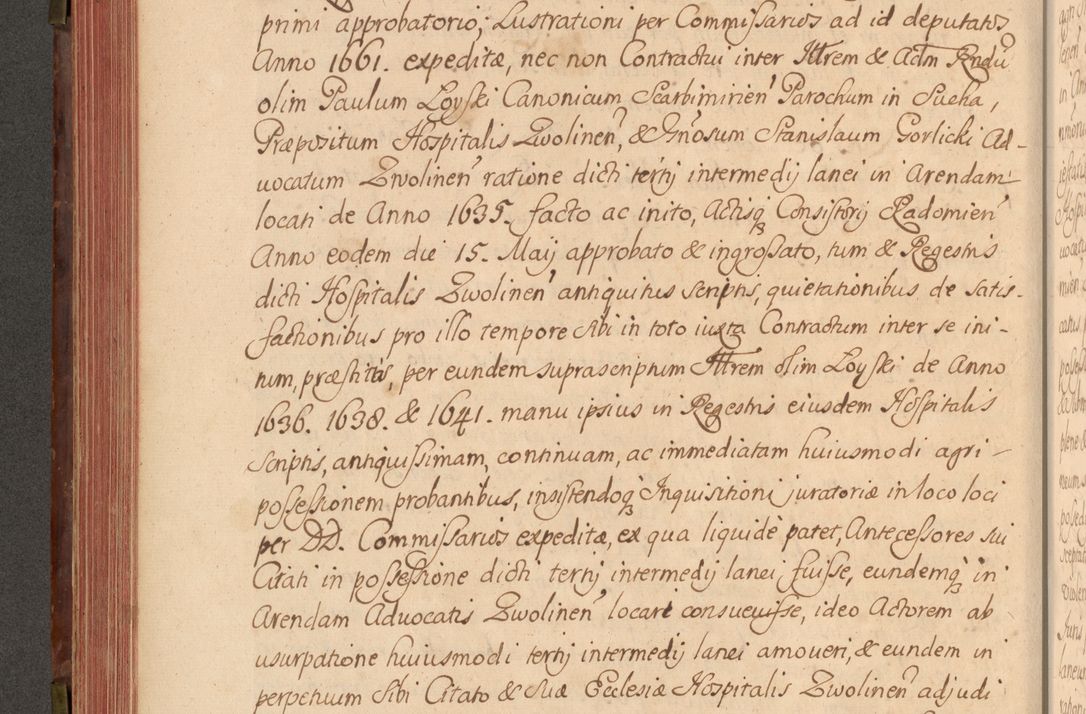 primi approbatorio; Lustrationi per Commissarios ad id deputatos
Anno 1661. expeditæ, nec non Contractui inter Illrem & Actm Rndū
olim Paulum Loyski Canonicum Scarbimirien̄ Parochum in Sucha,
Præpositum Hospitalis Zwolinen̄, & Gn̄osum Stanislaum Gorlicki Ad-
uocatum Zwolinen̄ ratione dicti tertij intermedij lanei in Arendam
locati de Anno 1635. facto ac inito, Actisq̨ Consistorij Radomien̄
Anno eodem die 15. Maij approbato & ingrossato, tum & Regestris
dicti Hospitalis Zwolinen̄ antiquitus scriptis, quietationibus de satis-
factionibus pro illo tempore sibi in toto iuxta Contractum inter se ini-
tum, præstitis, per eundem suprascriptum Illrem olim Loyski de Anno
1636. 1638. & 1641. manu ipsius in Regestris eiusdem Hospitalis
scriptis, antiquissimam, continuam, ac immediatam huiusmodi agri
possessionem probantibus, insistendoq̨ Inquisitioni juratoriæ in loco loci
per DD. Commissarios expeditæ, ex qua liquidè patet, Antecessores sui
Citati in possessione dicti tertij intermedij lanei fuisse, eundemq̨ in
Arendam Aduocatis Zwolinen̄ locare consueuisse, ideo Actorem ab
usurpatione huiusmodi tertij intermedij lanei amoueri, & eundem in
perpetuum sibi Citato & suæ Ecclesiæ Hospitalis Zwolinen̄ adjudi